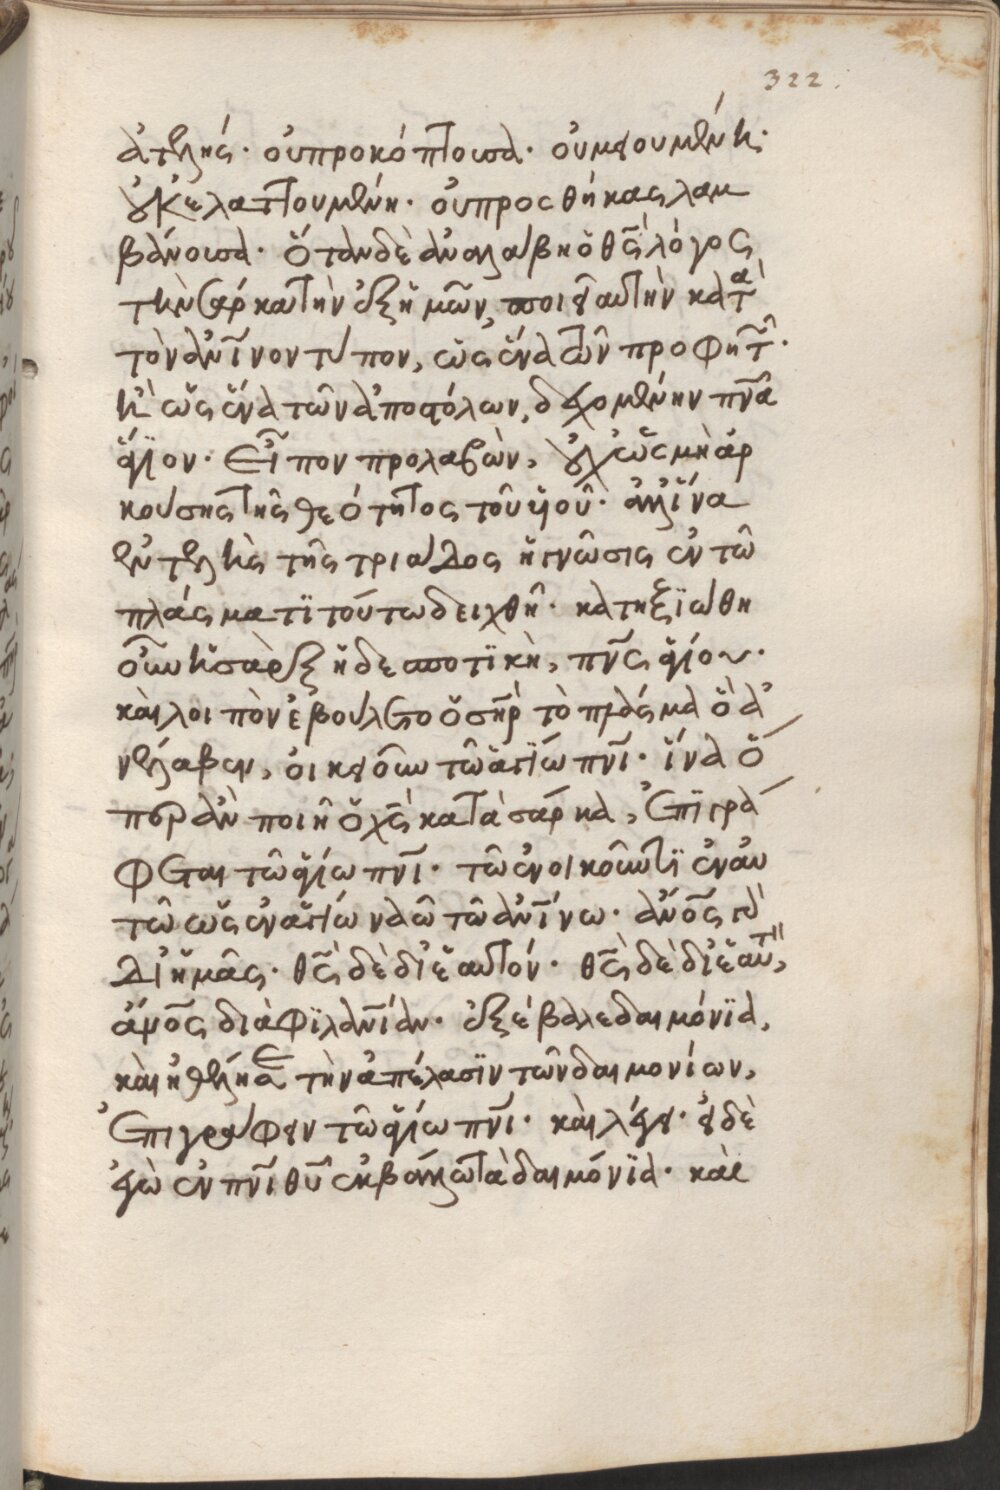 322.
ἀτελής· οὐ προκόπτουσα· οὐ μειουμένη·
οὐκ ἐλαττουμένη· οὐ προσθήκας λαμ
βάνουσα· ὅταν δὲ ἀναλάβη ὁ θ̅ς̅ λόγος
τὴν σάρκα τὴν ἐξ ἡμῶν, ποιεῖ αὐτὴν κατὰ
τὸν ἀν̅ι̅νον τύπον, ὡς ἕνα τῶν προφητῶν·
καὶ ὡς ἕνα τῶν ἀποστόλων, δεχομένην πν̅α̅
ἅγιον· Εἶπον προλαβὼν, οὐχ ὡς μὴ ἀρ
κούσης τῆς θεότητος τοῦ υἱοῦ· ἀλλ' ἵνα
ἐντελὴς τῆς τριάδος ἡ γνῶσις ἐν τῶ
πλάσματι τούτω δειχθῆ· κατηξιώθη
οὖν ἡ σὰρξ ἡ δεσποτικὴ, πν̅ς̅ ἁγίου·
καὶ λοιπὸν ἐβούλετο ὁ σ̅η̅ρ̅ τὸ πλάσμα ὃ ἀ
ντέλαβεν, οἰκειοῦν τῶ ἁγίω πν̅ι̅· ἵνα ὅ
περ ἂν ποιῆ ὁ χ̅ς̅ κατὰ σάρκα, ἐπιγρά
φεται τῶ ἁγίω πν̅ι̅· τῶ ἐνοικοῦντι ἐν αὐ
τῶ ὡς ἐν ἁγίω ναῶ τῶ ἀν̅ι̅νω· ἀν̅ο̅ς
δι' ἡμᾶς· θ̅ς̅ δὲ δι' ἑαυτόν· θ̅ς̅ δὲ δι' ἑαυτὸν,
ἀν̅ο̅ς διὰ φιλαν̅ι̅αν· ἐξέβαλε δαιμόνια,
καὶ ἠθέλησε τὴν ἀπέλασιν τῶν δαιμονίων,
ἐπιγράφειν τῶ ἁγίω πν̅ι̅· καὶ λέγει· εἰ δὲ
ἐγὼ ἐν πν̅ι̅ θ̅υ̅ ἐκβάλλω τὰ δαιμόνια· καὶ